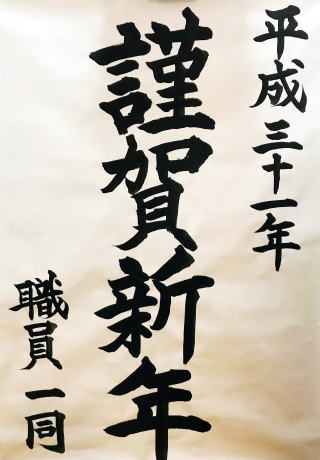 平成三十一年
謹賀新年
職員一同